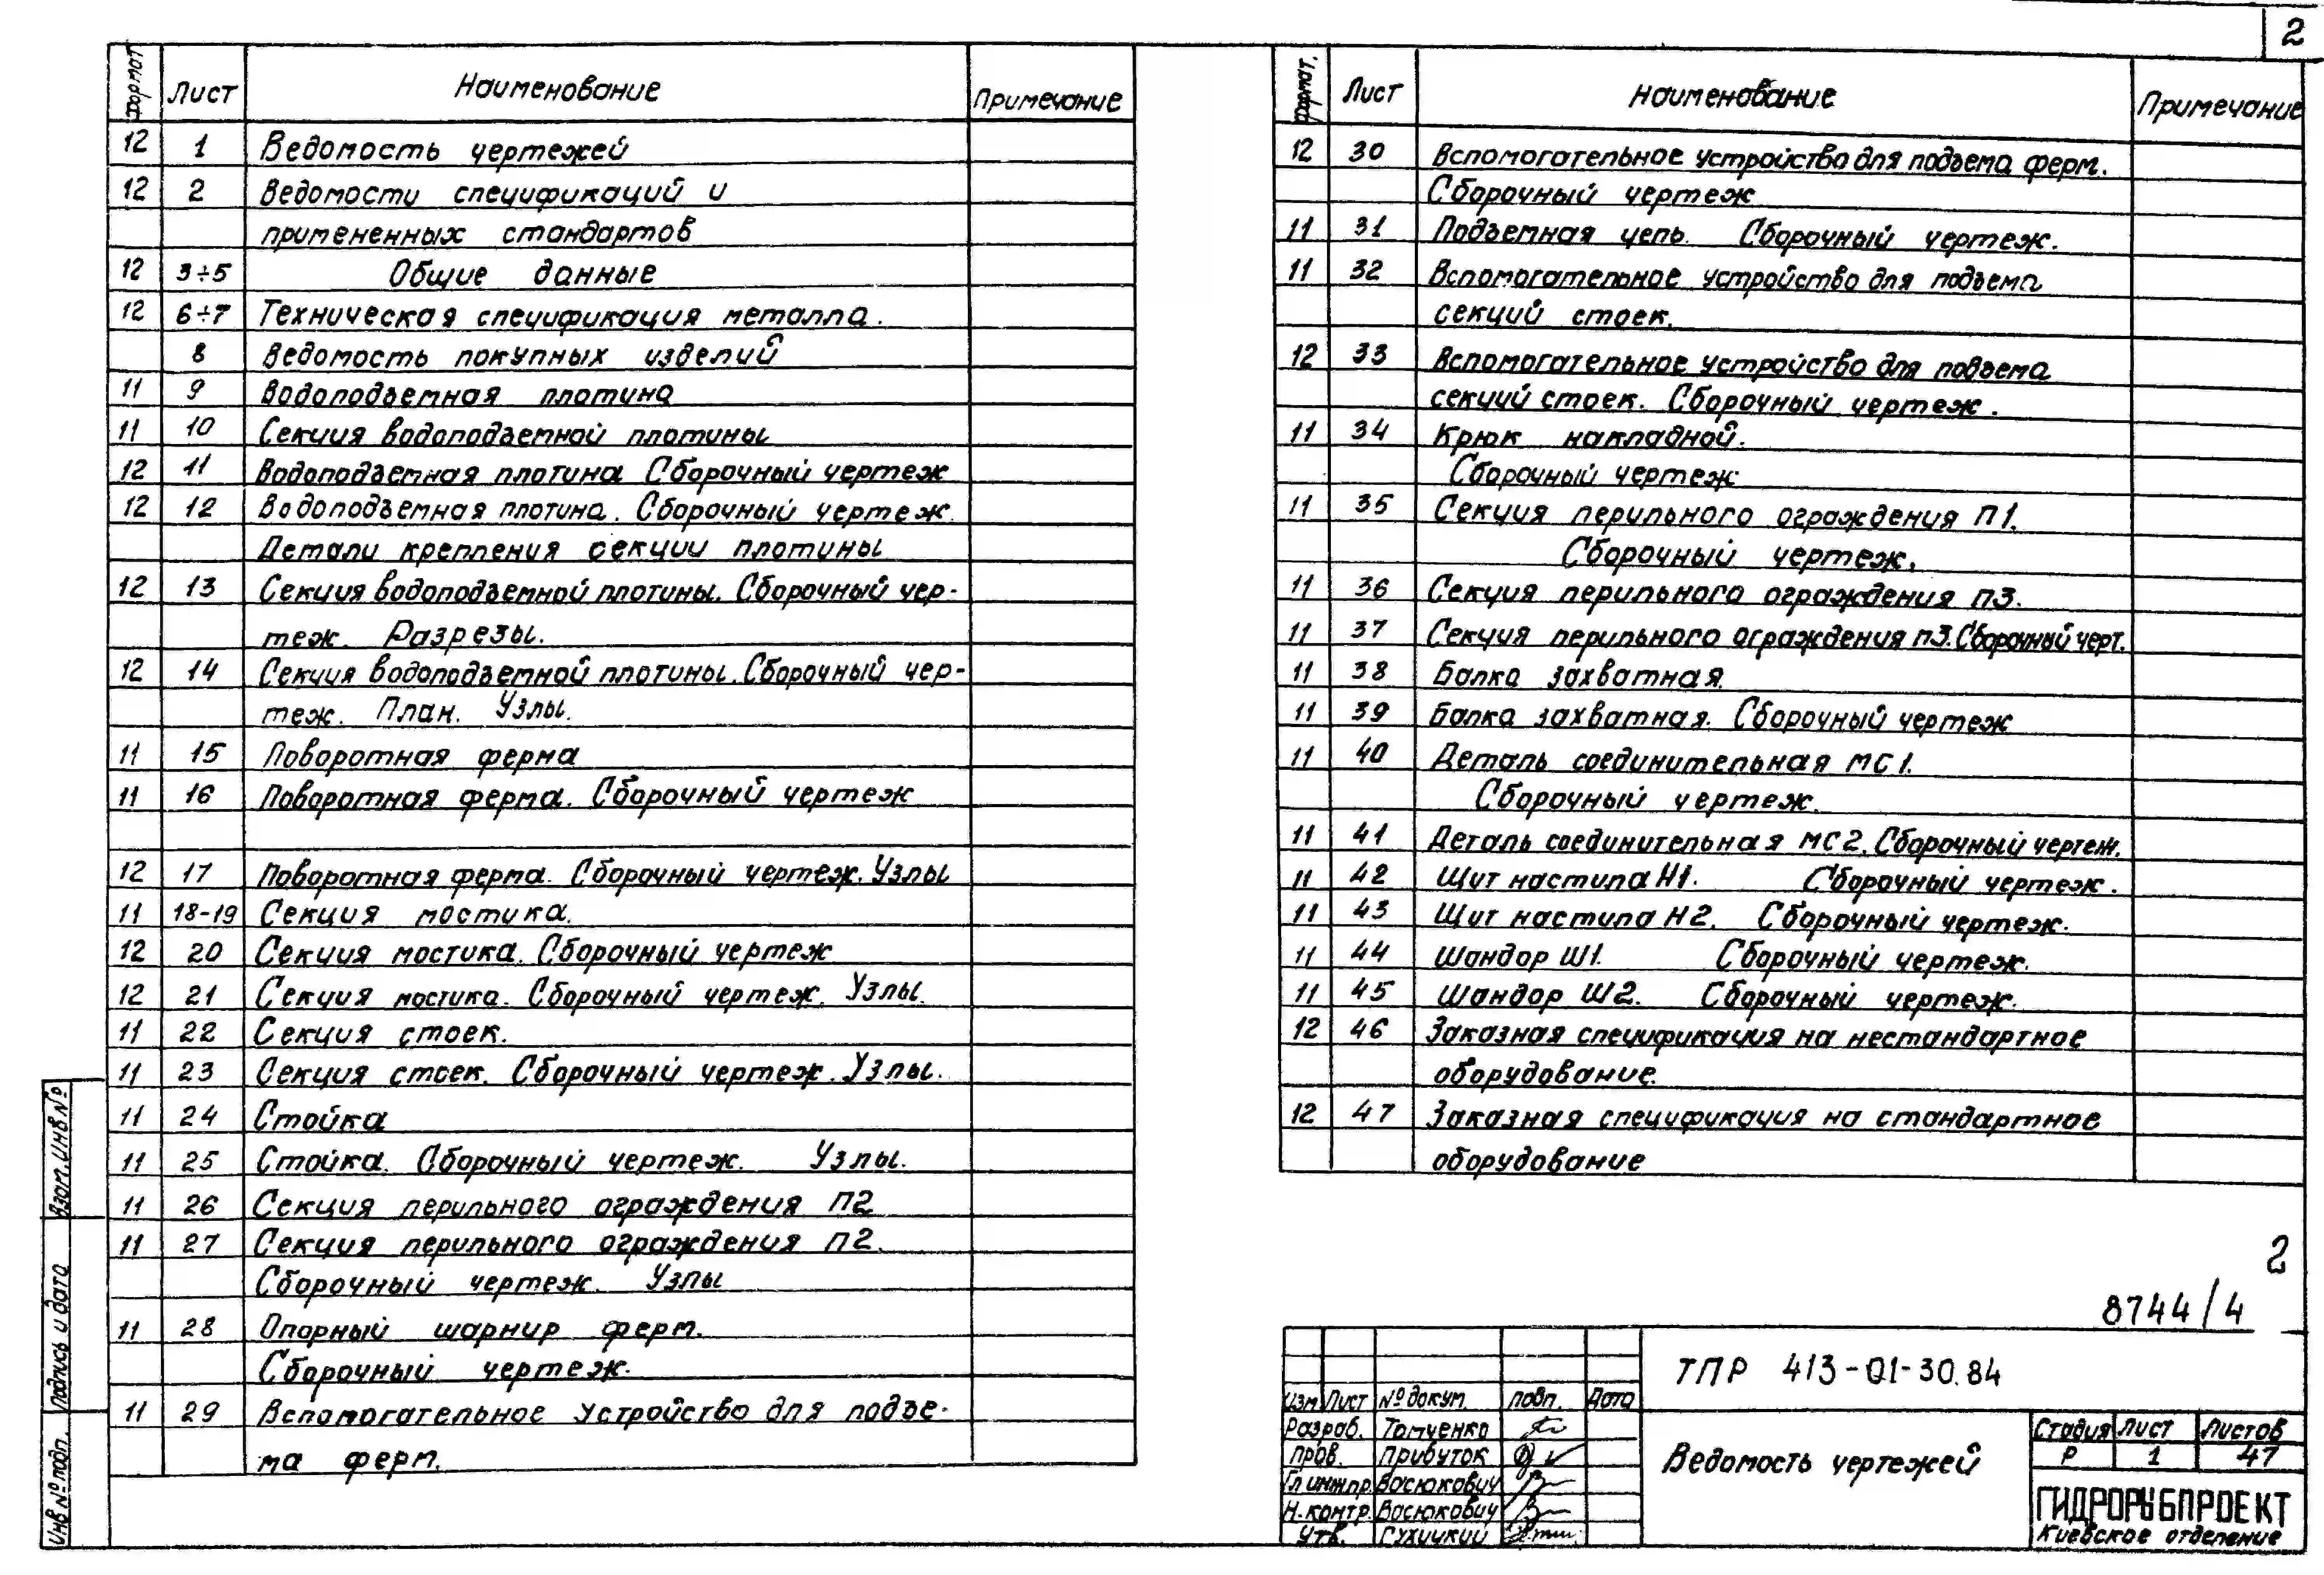 2
Формат Лист Наименование Примечание
12 1 Ведомость чертежей
12 2 Ведомости спецификаций и
примененных стандартов
12 3÷5 Общие данные
12 6÷7 Техническая спецификация металла.
8 Ведомость покупных изделий
11 9 Водоподъемная плотина
11 10 Секция водоподъемной плотины
12 11 Водоподъемная плотина Сборочный чертеж
12 12 Водоподъемная плотина. Сборочный чертеж.
Детали крепления секции плотины
12 13 Секция водоподъемной плотины. Сборочный чер-
теж. Разрезы.
12 14 Секция водоподъемной плотины. Сборочный чер-
теж. План. Узлы.
11 15 Поворотная ферма
11 16 Поворотная ферма. Сборочный чертеж
12 17 Поворотная ферма. Сборочный чертеж. Узлы
11 18-19 Секция мостика.
12 20 Секция мостика. Сборочный чертеж
12 21 Секция мостика. Сборочный чертеж. Узлы.
11 22 Секция стоек.
11 23 Секция стоек. Сборочный чертеж. Узлы.
11 24 Стойка
11 25 Стойка. Сборочный чертеж. Узлы.
11 26 Секция перильного ограждения П2
11 27 Секция перильного ограждения П2.
Сборочный чертеж. Узлы
11 28 Опорный шарнир ферм.
Сборочный чертеж.
11 29 Вспомогательное устройство для подъе-
ма ферм.
Формат. Лист Наименование Примечание
12 30 Вспомогательное устройство для подъема ферм.
Сборочный чертеж
11 31 Подъемная цепь. Сборочный чертеж.
11 32 Вспомогательное устройство для подъема
секций стоек.
12 33 Вспомогательное устройство для подъема
секций стоек. Сборочный чертеж.
11 34 Крюк накладной.
Сборочный чертеж
11 35 Секция перильного ограждения П1.
Сборочный чертеж.
11 36 Секция перильного ограждения П3.
11 37 Секция перильного ограждения П3. Сборочный черт.
11 38 Балка захватная.
11 39 Балка захватная. Сборочный чертеж
11 40 Деталь соединительная МС1.
Сборочный чертеж.
11 41 Деталь соединительная МС2. Сборочный чертеж.
11 42 Щит настила Н1. Сборочный чертеж.
11 43 Щит настила Н2. Сборочный чертеж.
11 44 Шандор Ш1. Сборочный чертеж.
11 45 Шандор Ш2. Сборочный чертеж.
12 46 Заказная спецификация на нестандартное
оборудование.
12 47 Заказная спецификация на стандартное
оборудование
2
8744/4
ТПР 413-01-30.84
Изм. Лист № докум. подп. Дата
Разраб. Томченко
пров. Прибуток
Гл инж пр. Васюкович
Н.контр. Васюкович
Утв. Сухицкий
Ведомость чертежей
Стадия Лист Листов
Р 1 47
ГИДРОРЫБПРОЕКТ
Киевское отделение
Взам. Инв №
Подпись и дата
Инв № подл.